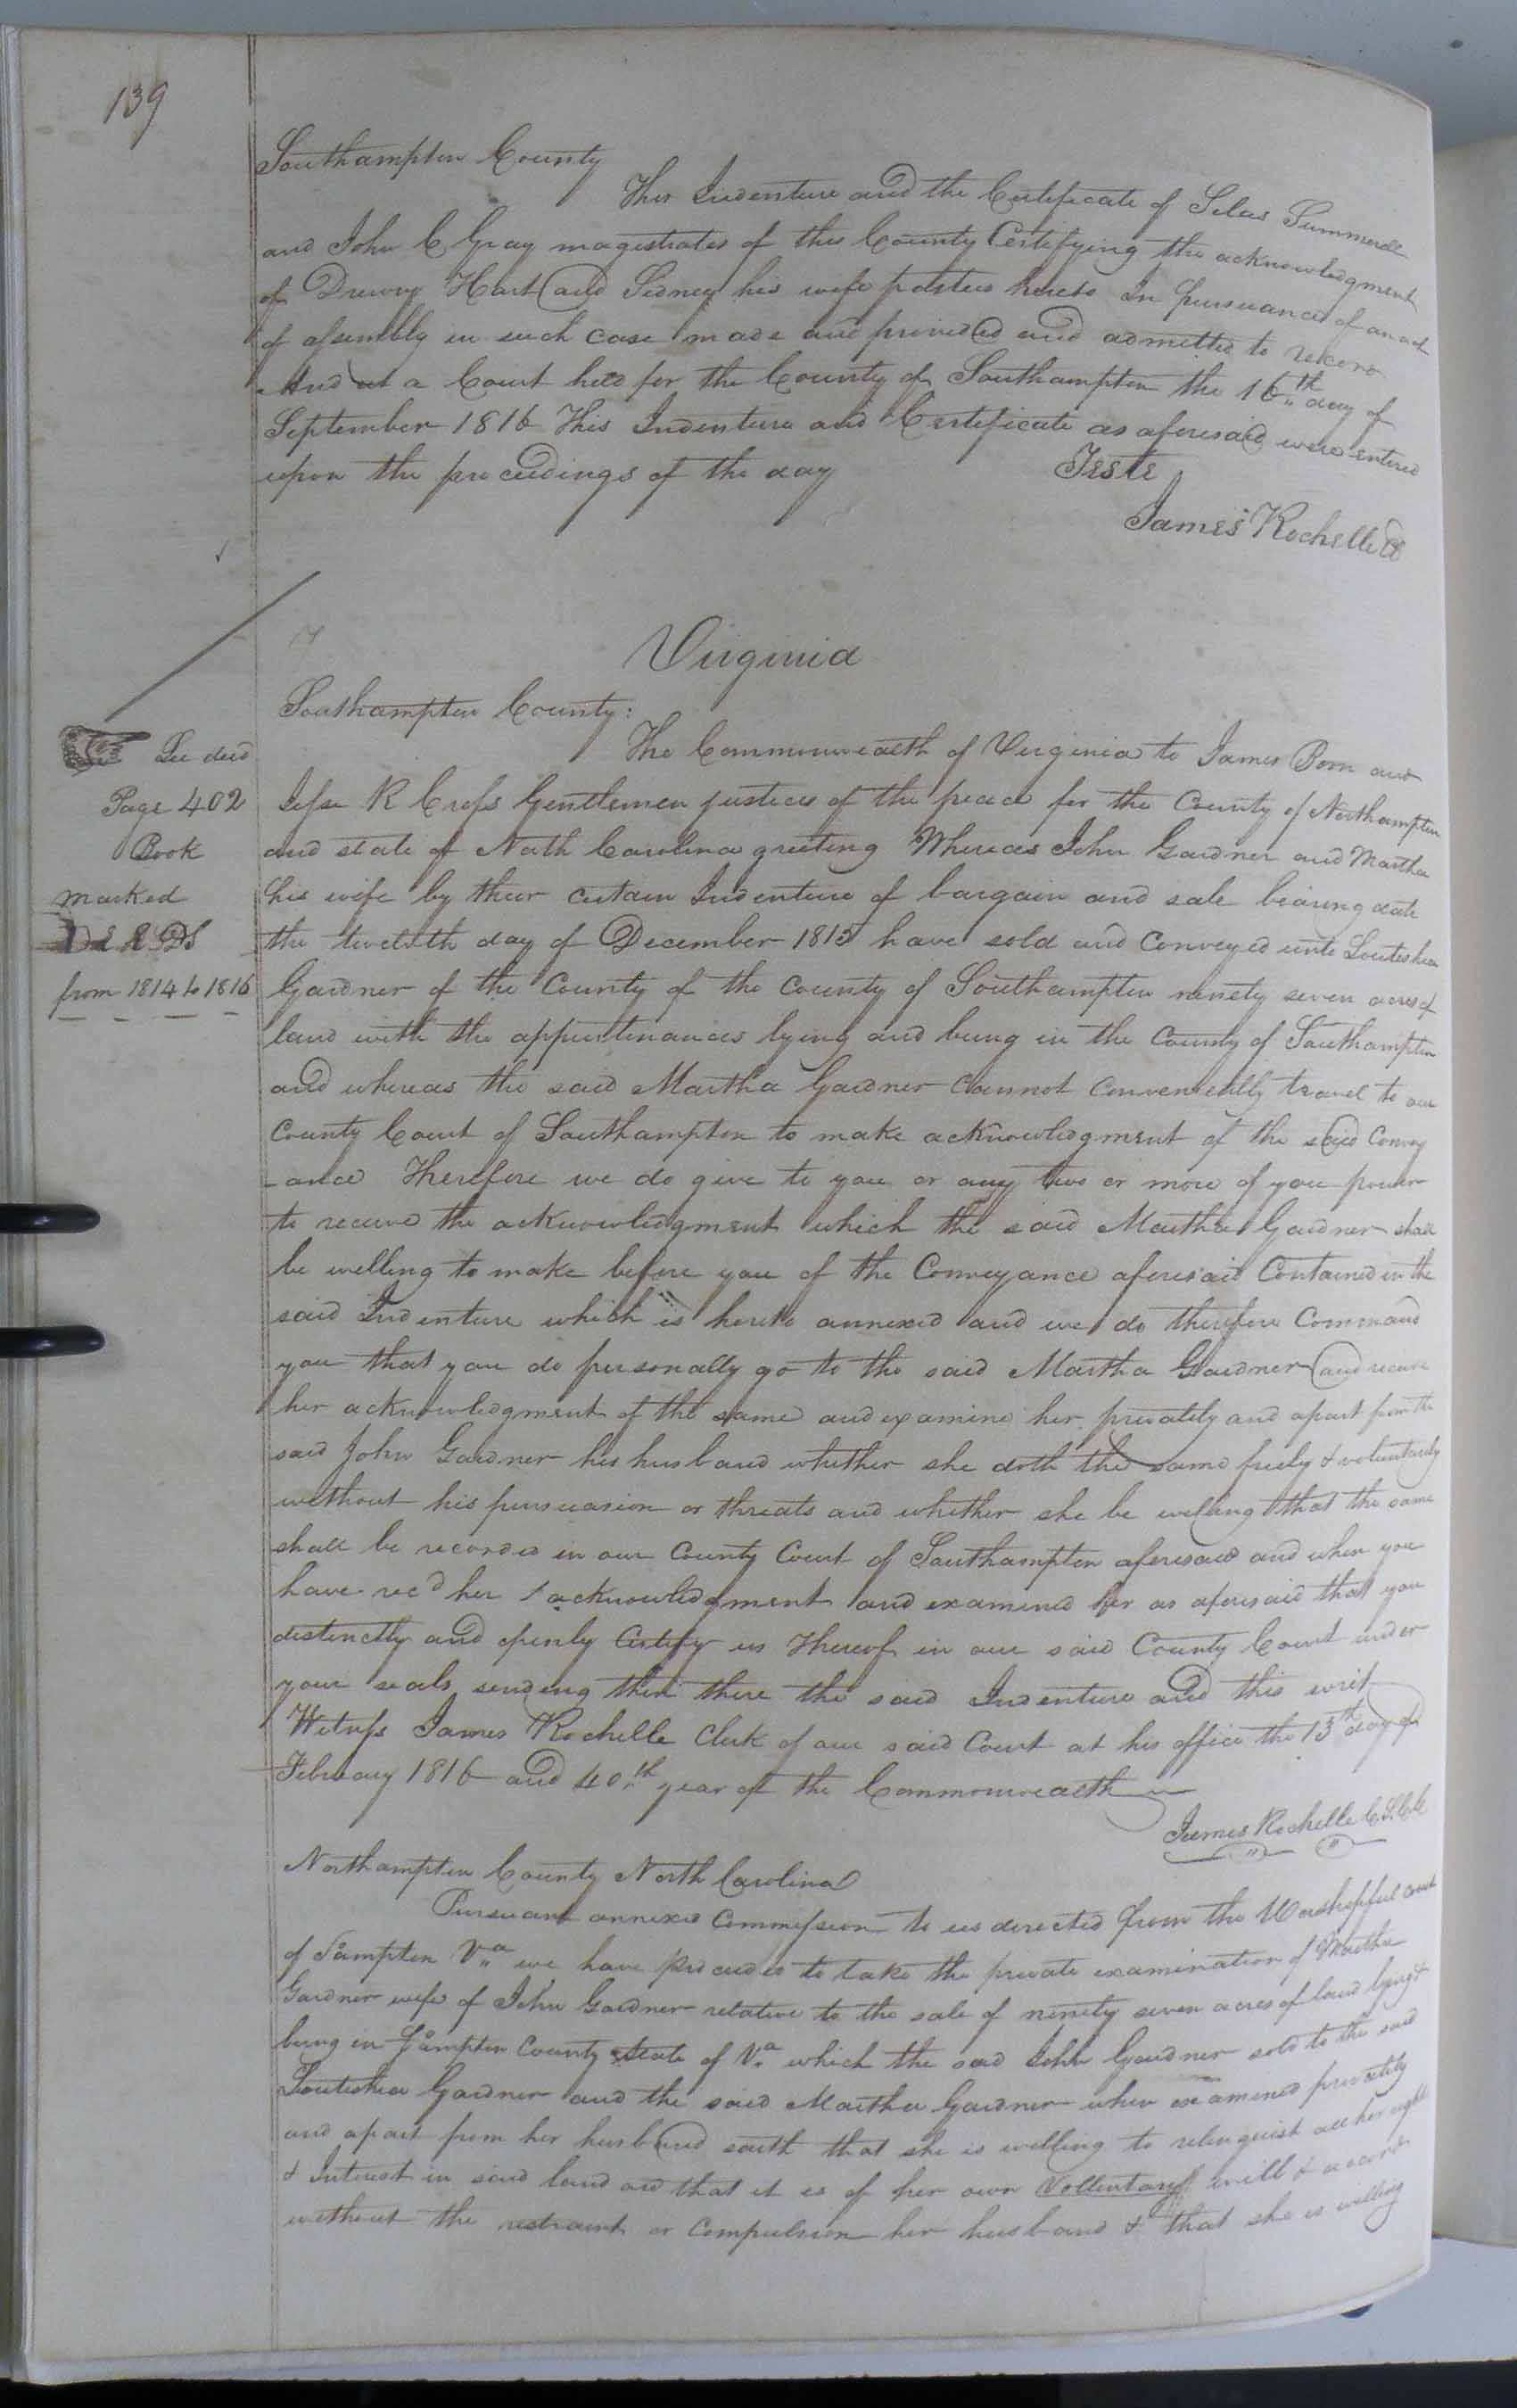 139
Southampton County
This Indenture and the Certificate of Silas Summerell
and John C Gray magistrates of this County Certifying the acknowledgment
of Drewry Hart and Sidney his wife parties hereto In pursuance of an act
of assembly in such case made and provided and admitted to record
And at a Court held for the County of Southampton the 16th day of
September 1816 This Indenture and Certificate as aforesaid were entered
upon the proceedings of the day
Teste
James Rochelle
Virginia
Southampton County:
The Commonwealth of Virginia to James Born and
Jesse R Cross Gentlemen justices of the peace for the County of Northampton
and state of North Carolina greeting Whereas John Gardner and Martha
his wife by their certain Indenture of bargain and sale bearing date
the twelfth day of December 1815 have sold and Conveyed unto
Gardner of the County of the County of Southampton ninety seven acres of
land with the appurtenances lying and being in the County of Southampton
and whereas the said Martha Gardner Cannot Conveniently travel to our
County Court of Southampton to make acknowledgment of the said Convey
-ance Therefore we do give to you or any two or more of you power
to receive the acknowledgment which the said Martha Gardner shall
be willing to make before you of the Conveyance aforesaid Contained in the
said Indenture which is hereto annexed and we do therefore Command
you that you do personally go to the said Martha Gardner and receive
her acknowledgment of the same and examine her privately and apart from the
said John Gardner his husband whether she doth the same freely & voluntarily
without his pursuasion or threats and whether she be willing that the same
shall be recorded in our County Court of Southampton aforesaid and when you
have recd her acknowledgment and examined her as aforesaid that you
distinctly and openly Certify us Thereof in our said County Court under
your seals sending then there the said Indenture and this writ
Witness James Rochelle Clerk of our said Court at his office the 13th day of
February 1816 and 40th year of the Commonwealth
James Rochelle
Northampton County North Carolina
Pursuant annexed Commission to us directed from the Worshipful court
of Sampton Va we have proceeded to take the private examination of Martha
Gardner wife of John Gardner relative to the sale of ninety seven acres of land lying &
being in Sampton County State of Va which the said John Gardner sold to the said
Gardner and the said Martha Gardner when examined privately
and apart from her husband saith that she is willing to relinquist all her right
& Interest in said land and that it is of her own Vollentary will & accord
without the restraint or Compulsion her husband & that she is willing
See deed
Page 402
Book
marked
DEEDS
from 1814 to 1816